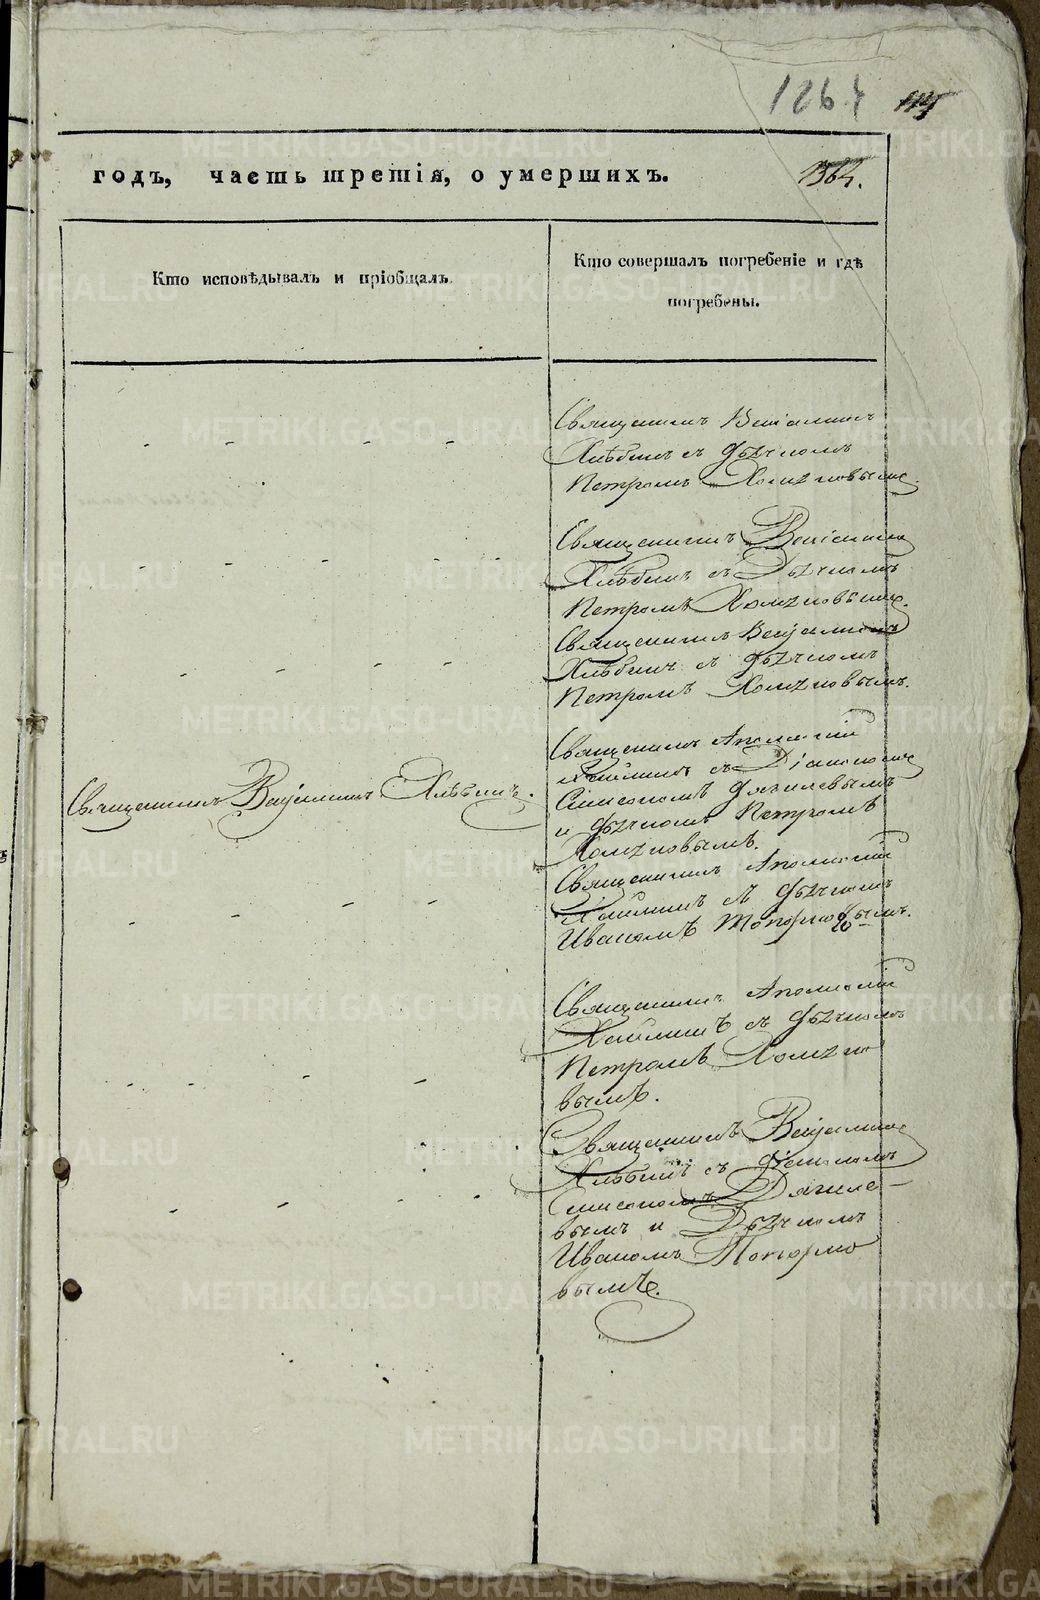 1264
годъ, часть третія, о умершихъ.
1364.
Кто исповѣдывалъ и пріобщалъ.
Кто совершалъ погребеніе и гдѣ
погребены.
Священникъ Веніаминъ
Хлѣбинъ съ дьячкомъ
Петромъ Хомяковымъ.
Священникъ Веніаминъ
Хлѣбинъ съ Дьячкомъ
Петромъ Хомяковымъ.
Священникъ Веніаминъ
Хлѣбинъ съ дьячкомъ
Петромъ Хомяковымъ.
Священникъ Веніаминъ Хлѣбинъ.
Священникъ Аполлоній
съ Діакономъ
Симеономъ Дягилевымъ
и дьячкомъ Петромъ
Хомяковымъ.
Священникъ Аполлоній
съ дьячкомъ
Иваномъ Топорковымъ.
Священникъ Аполлоній
съ дьячкомъ
Петромъ Хомяко
вымъ.
Священникъ Веніаминъ
Хлѣбинъ съ діакономъ
Симеономъ Дягиле-
вымъ и Дьячкомъ
Иваномъ Топорко
вымъ.
METRIKI.GASO-URAL.RU